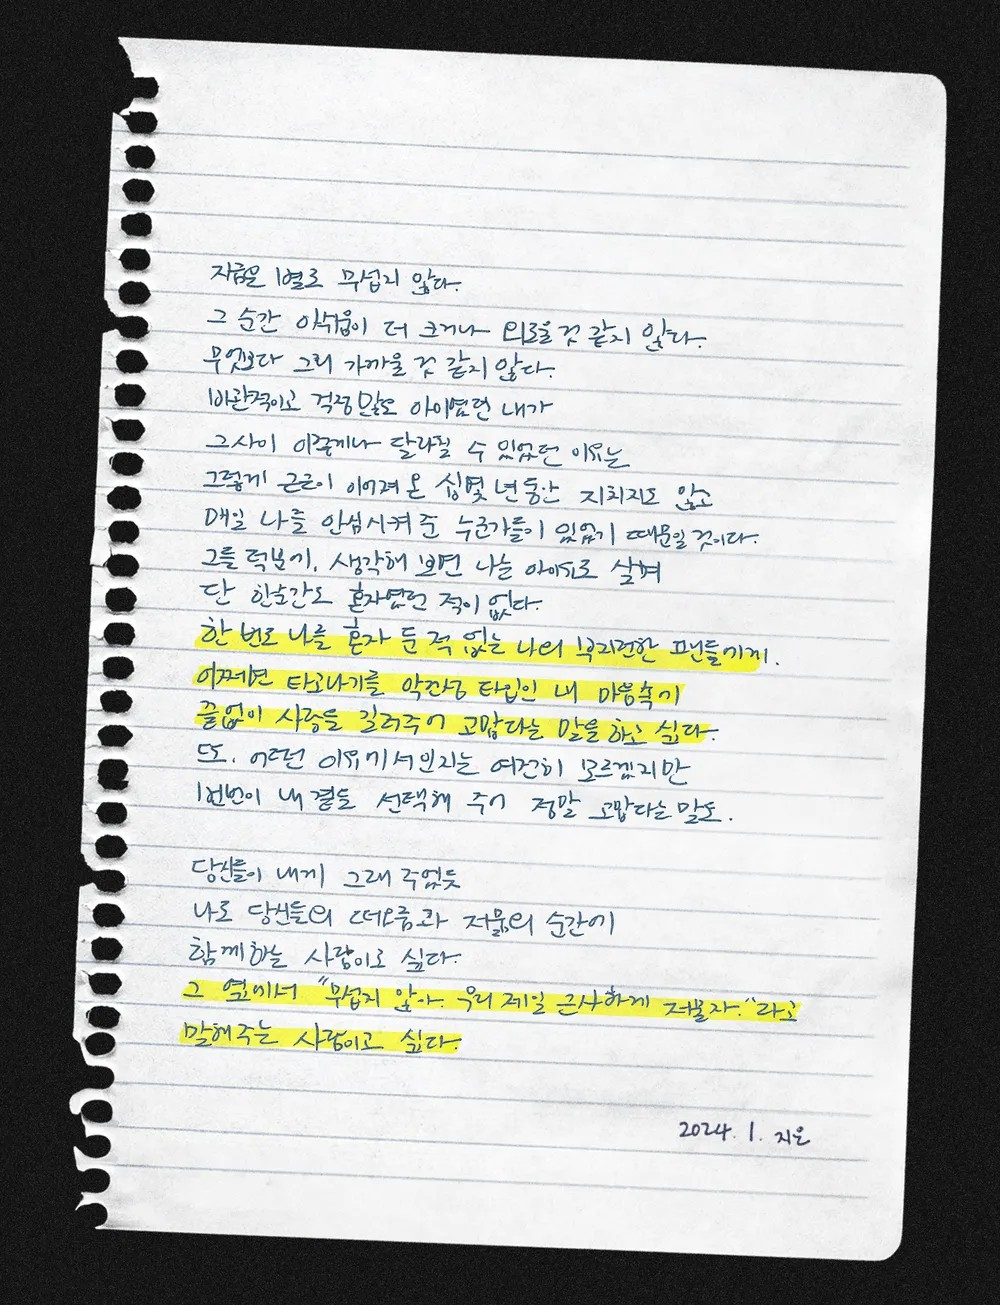 지금은 별로 무섭지 않다.
그 순간 아쉬움이 더 크거나 외로울 것 같지 않다.
무엇보다 그리 가까울 것 같지 않다.
비관적이고 걱정 많은 아이였던 내가
그 사이 이렇게나 달라질 수 있었던 이유는
그렇게 근근이 이어져 온 십몇 년 동안 지치지도 않고
매일 나를 안심시켜 준 누군가들이 있었기 때문일 것이다.
그들 덕분에, 생각해 보면 나는 아이유로 살며
단 한순간도 혼자였던 적이 없다.
한 번도 나를 혼자 둔 적 없는 나의 부지런한 팬들에게.
어쩌면 타고나기를 악건성 타입인 내 마음속에
끝없이 사랑을 길러주어 고맙다는 말을 하고 싶다.
또, 어떤 이유에서인지는 여전히 모르겠지만
1번번이 내 곁을 선택해 주어 정말 고맙다는 말도.
당신들이 내게 그래 주었듯
나도 당신들의 떠오름과 저묾의 순간에
함께하는 사람이고 싶다.
그 옆에서 "무섭지 않아. 우리 제일 근사하게 저물자."라고
말해주는 사람이고 싶다.
2024. 1. 지은